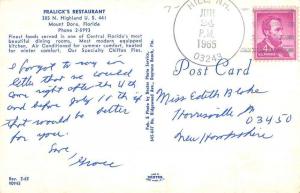 FRALICK'S RESTAURANT
385 N. Highland U. S. 441
Mount Dora, Florida
Phone 2-5993
Finest foods served in one of Central Florida's most
beautiful dining rooms. Most modern equipped
kitchen. Air Conditioned for summer comfort, heated
for winter comfort. Our Specialty Chiffon Pies.
I forgot to say in
letter that we would
come right after the 4th
and before July 11th if
that would be better
for you.
Love,
Grace
Rev. 7-62
HILL, N.H.
JUN
P.M.
1965
03243
4¢
Post Card
Miss Edith Blake
Harrisville
03450
New Hampshire